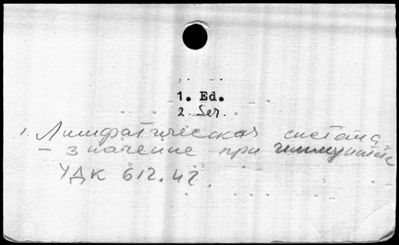 1. Ed.
2. Ser.
1. Лимфатическая система
- значение при иммунитете
УДК 612.42.